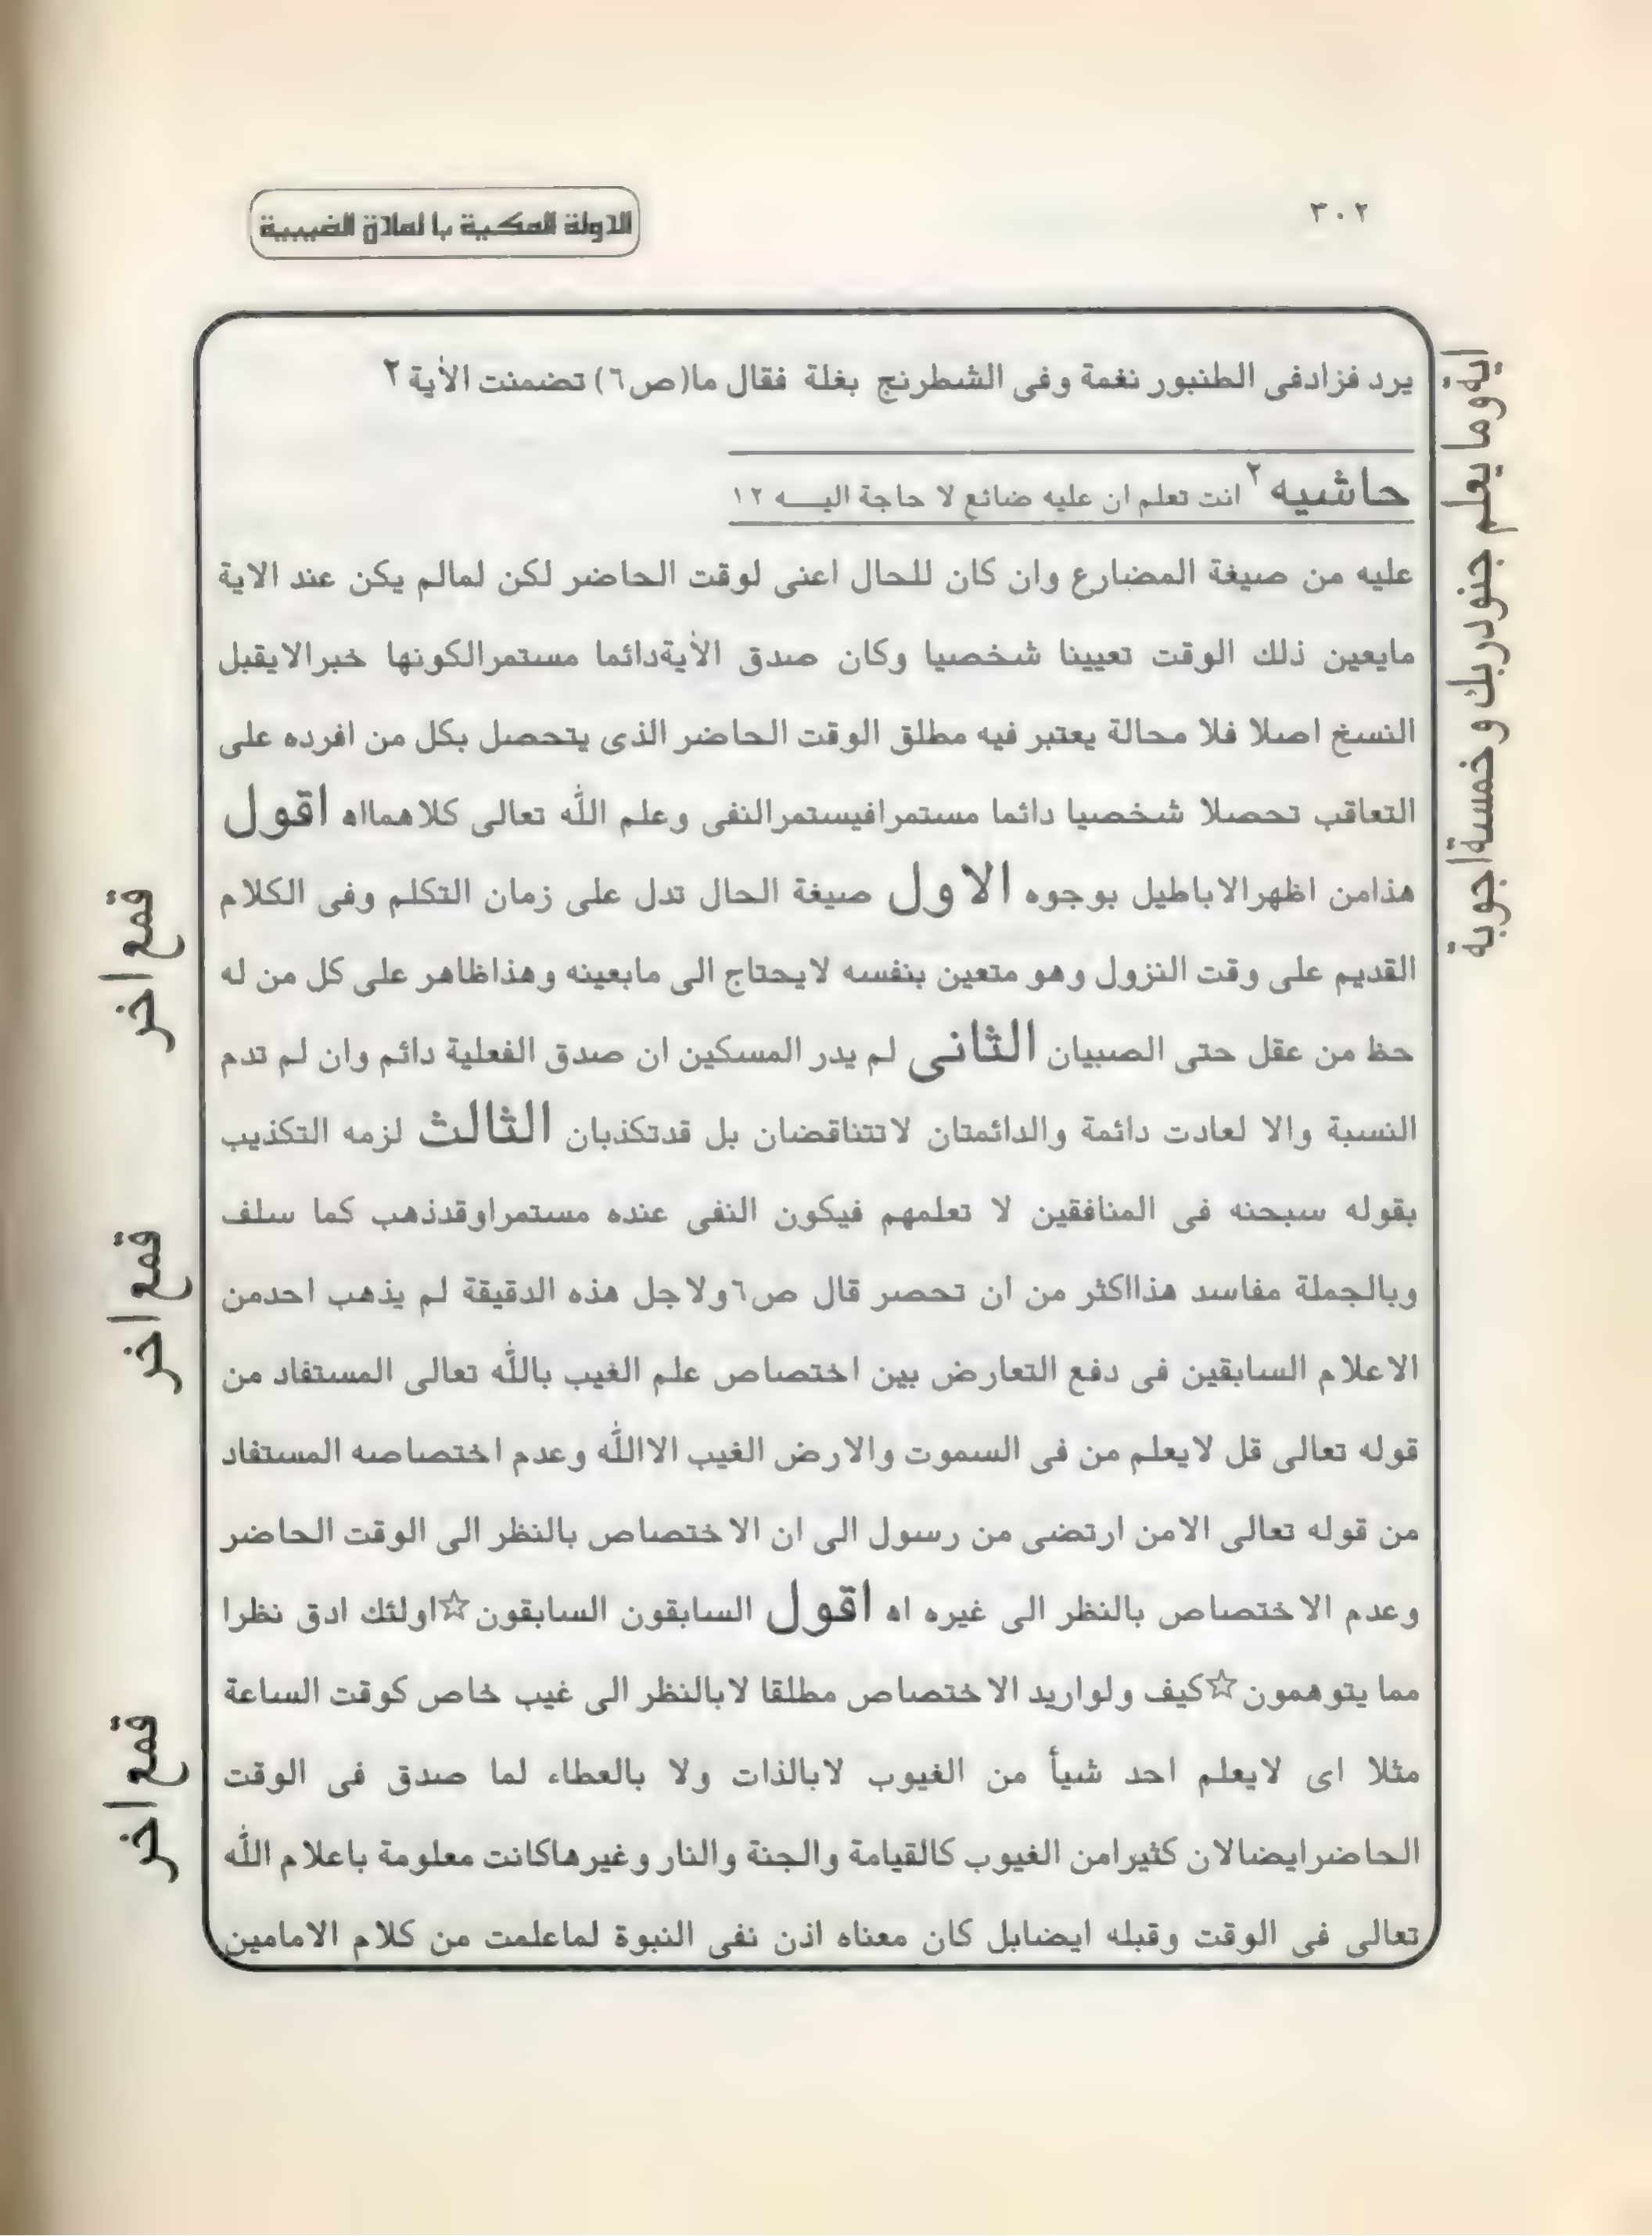 ٣٠٢
الدولة المكية با لمادة الغيبية
يرد فزادفى الطنبور نغمة وفى الشطرنج بغلة فقال ما(ص٦) تضمنت الأية٢
حاشيه٢ انت تعلم ان عليه ضائع لا حاجة اليــه ١٢
عليه من صيغة المضارع وان كان للحال اعنى لوقت الحاضر لكن لمالم يكن عند الاية
مايعين ذلك الوقت تعيينا شخصيا وكان صدق الأيةدائما مستمرالكونها خبرالايقبل
النسخ اصلا فلا محالة يعتبر فيه مطلق الوقت الحاضر الذى يتحصل بكل من افرده على
التعاقب تحصلا شخصيا دائما مستمرافيستمرالنفى وعلم الله تعالى كلاهمااه اقول
هذامن اظهرالاباطيل بوجوه الاول صيغة الحال تدل على زمان التكلم وفى الكلام
القديم على وقت النزول وهو متعين بنفسه لايحتاج الى مابعينه وهذاظاهر على كل من له
حظ من عقل حتى الصبيان الثانى لم يدر المسكين ان صدق الفعلية دائم وان لم تدم
النسبة والا لعادت دائمة والدائمتان لاتتناقضان بل قدتكذبان الثالث لزمه التكذيب
بقوله سبحنه فى المنافقين لا تعلمهم فيكون النفى عنده مستمراوقدذهب كما سلف
وبالجملة مفاسد هذااكثر من ان تحصر قال ص٦ولاجل هذه الدقيقة لم يذهب احدمن
الاعلام السابقين فى دفع التعارض بين اختصاص علم الغيب بالله تعالى المستفاد من
قوله تعالى قل لايعلم من فى السموت والارض الغيب الاالله وعدم اختصاصه المستفاد
من قوله تعالى الامن ارتضى من رسول الى ان الاختصاص بالنظر الى الوقت الحاضر
وعدم الاختصاص بالنظر الى غيره اه اقول السابقون السابقون☆اولئك ادق نظرا
مما يتوهمون☆كيف ولواريد الاختصاص مطلقا لابالنظر الى غيب خاص كوقت الساعة
مثلا اى لايعلم احد شيأ من الغيوب لابالذات ولا بالعطاء لما صدق فى الوقت
الحاضرايضالان كثيرامن الغيوب كالقيامة والجنة والنار وغيرهاكانت معلومة باعلام الله
تعالى فى الوقت وقبله ايضابل كان معناه اذن نفى النبوة لماعلمت من كلام الامامين
اية وما يعلم جنودربك وخمسة اجوبة
قمع اخر
قمع اخر
قمع اخر